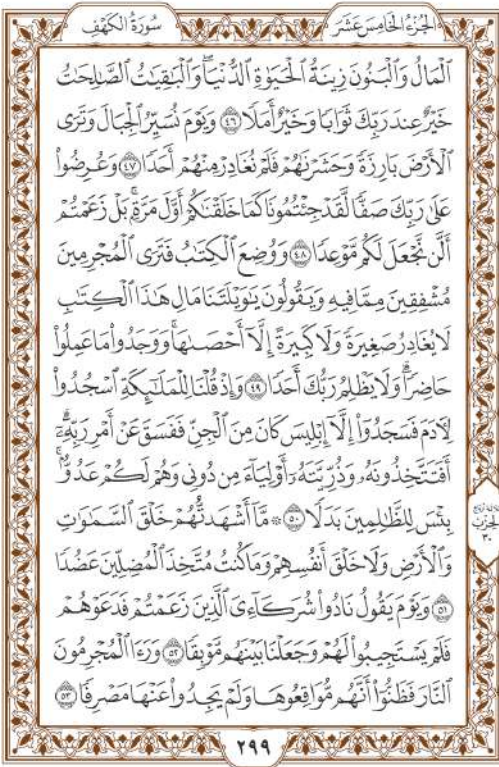 الجُزْءُ الخَامِسَ عَشَرَ
سُورَةُ الكَهْفِ
ٱلۡمَالُ وَٱلۡبَنُونَ زِينَةُ ٱلۡحَيَوٰةِ ٱلدُّنۡيَاۖ وَٱلۡبَٰقِيَٰتُ ٱلصَّٰلِحَٰتُ
خَيۡرٌ عِندَ رَبِّكَ ثَوَابٗا وَخَيۡرٌ أَمَلٗا ٤٦ وَيَوۡمَ نُسَيِّرُ ٱلۡجِبَالَ وَتَرَى
ٱلۡأَرۡضَ بَارِزَةٗ وَحَشَرۡنَٰهُمۡ فَلَمۡ نُغَادِرۡ مِنۡهُمۡ أَحَدٗا ٤٧ وَعُرِضُواْ
عَلَىٰ رَبِّكَ صَفّٗا لَّقَدۡ جِئۡتُمُونَا كَمَا خَلَقۡنَٰكُمۡ أَوَّلَ مَرَّةِۭۚ بَلۡ زَعَمۡتُمۡ
أَلَّن نَّجۡعَلَ لَكُم مَّوۡعِدٗا ٤٨ وَوُضِعَ ٱلۡكِتَٰبُ فَتَرَى ٱلۡمُجۡرِمِينَ
مُشۡفِقِينَ مِمَّا فِيهِ وَيَقُولُونَ يَٰوَيۡلَتَنَا مَالِ هَٰذَا ٱلۡكِتَٰبِ
لَا يُغَادِرُ صَغِيرَةٗ وَلَا كَبِيرَةً إِلَّآ أَحۡصَىٰهَاۚ وَوَجَدُواْ مَا عَمِلُواْ
حَاضِرٗاۗ وَلَا يَظۡلِمُ رَبُّكَ أَحَدٗا ٤٩ وَإِذۡ قُلۡنَا لِلۡمَلَٰٓئِكَةِ ٱسۡجُدُواْ
لِأٓدَمَ فَسَجَدُوٓاْ إِلَّآ إِبۡلِيسَ كَانَ مِنَ ٱلۡجِنِّ فَفَسَقَ عَنۡ أَمۡرِ رَبِّهِۦٓۗ
أَفَتَتَّخِذُونَهُۥ وَذُرِّيَّتَهُۥٓ أَوۡلِيَآءَ مِن دُونِي وَهُمۡ لَكُمۡ عَدُوُّۢۚ
بِئۡسَ لِلظَّٰلِمِينَ بَدَلٗا ٥٠ ۞ مَّآ أَشۡهَدتُّهُمۡ خَلۡقَ ٱلسَّمَٰوَٰتِ
وَٱلۡأَرۡضِ وَلَا خَلۡقَ أَنفُسِهِمۡ وَمَا كُنتُ مُتَّخِذَ ٱلۡمُضِلِّينَ عَضُدٗا
٥١ وَيَوۡمَ يَقُولُ نَادُواْ شُرَكَآءِيَ ٱلَّذِينَ زَعَمۡتُمۡ فَدَعَوۡهُمۡ
فَلَمۡ يَسۡتَجِيبُواْ لَهُمۡ وَجَعَلۡنَا بَيۡنَهُم مَّوۡبِقٗا ٥٢ وَرَءَا ٱلۡمُجۡرِمُونَ
ٱلنَّارَ فَظَنُّوٓاْ أَنَّهُم مُّوَاقِعُوهَا وَلَمۡ يَجِدُواْ عَنۡهَا مَصۡرِفٗا ٥٣
الحِزْبِ
٣٠
٢٩٩